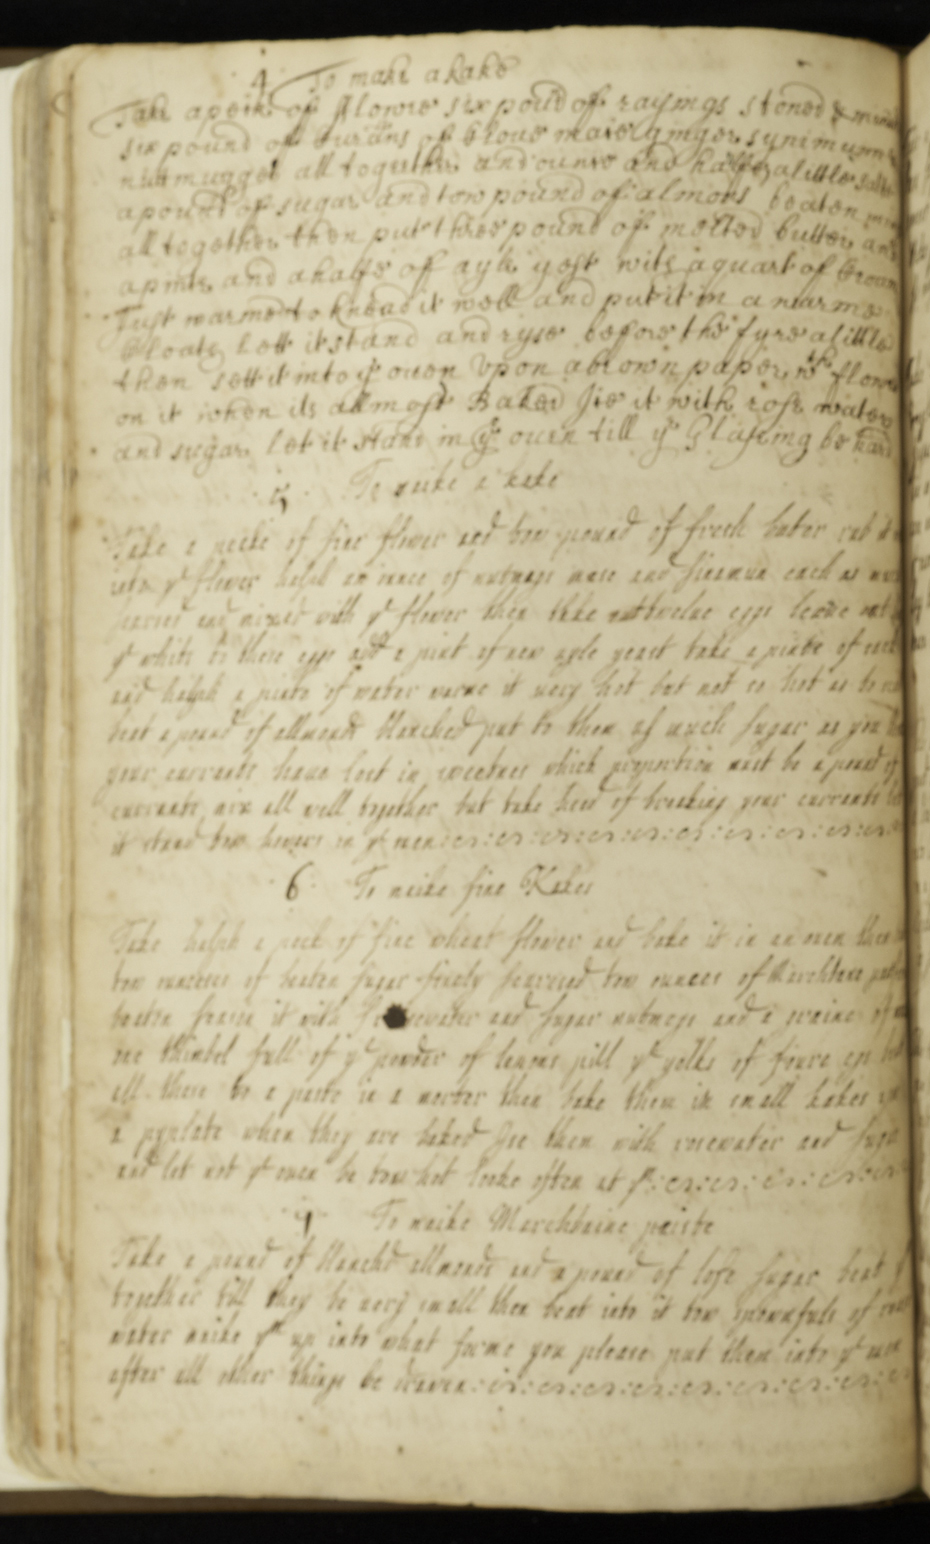 4 To make a kake
Take a peck of flowre six pound of raysings stoned &
six pound of curans of clove mace ginger synimumn
nutmugges all together and ounce and halfe a little salt
a pound of sugar and tow pound of almons beaten
all together then put three pound of melted butter and
a pinte and a halfe of ayle yest with a quart of cream
Just warmed to knead it well and put it in a warme
cloath lett it stand and ryse before the fyre a little
then sett it into ye oven Vpon a brown paper wth flowre
on it when its allmost Baked Jce it with rose water
and sugar let it stand in ye oven till ye Glasing be hard
5 To make a kake
Take a pecke of fine flower and tow pound of fresh buter rub it
into ye flower halph an ounce of nutmegs mase and sinamun each as much
searced and mixed with ye flower then take twelve eggs leave out
ye white to these eggs add a pint of new ayle yeast take a pinte of
and halph a pinte of water warme it very hot but not so hot as to
beat a pound of allmonds blanched put to them as much sugar as you
your currants have lost in sweetnes which proportion must be a pound of
currants mix all well together but take heed of breaking your currants
it stand tow howers in ye oven
6 To make fine Kakes
Take halph a peck of fine wheat flower and bake it in an oven then
tow ounces of beaten sugar finely searced tow ounces of Marchbane
beaten it with rosewater and sugar nutmegs and a graine of
one thimbel full of ye powder of lemons pill ye yolks of foure egs
all these to a paste in a morter then bake them in small kakes
a pyplate when they are baked Jce them with rosewater and sugar
and let not ye oven be tow hot looke often at
7 To make Marchbaine paiste
Take a pound of blanchd allmonds and a pound of lofe sugar beat
together till they be very small then beat into it tow spoonfuls of
water make ym up into what forme you please put them into ye oven
after all other things be drawen